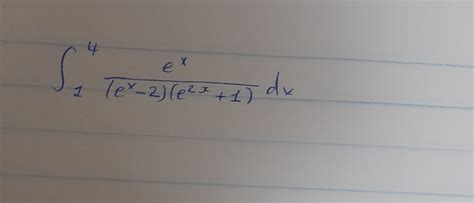 ∫₁⁴ eˣ / ((eˣ-2)(e²ˣ+1)) dx